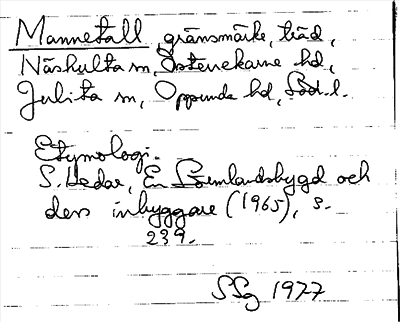 Mannetall gränsmärke, träd,
Näshulta sn, Österrekarne hd,
Julita sn, Oppunda hd, Södl.
Etymologi.
S. Hedar, En Sörmlandsbygd och
dess inbyggare (1965), s.
239.
SSg 1977